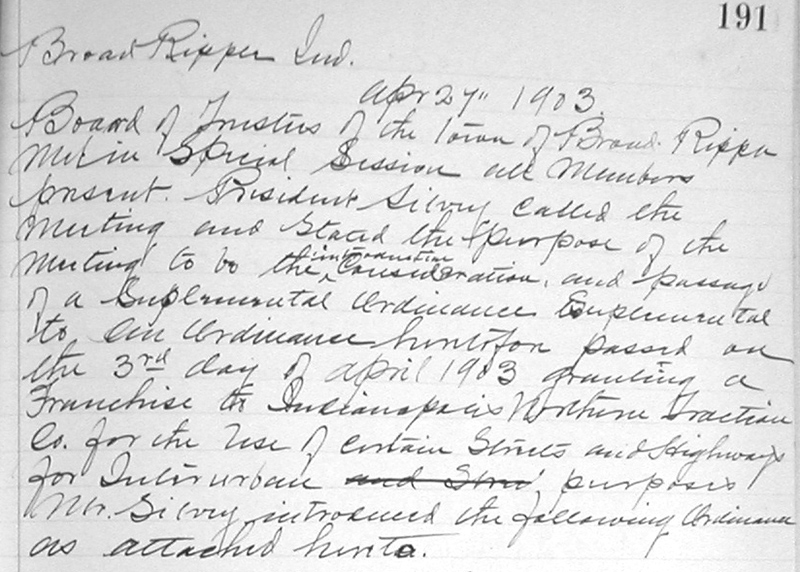 191
Broad Ripper Ind.
Apr 27" 1903.
Board of Trustees of the Town of Broad Rippa
Met in Special Session all Members
present. President Silvey called the
Meeting and Stated the purpose of the
introduction
Meeting to be the Consideration, and passage
of a Suplemental Ordinance Suplemental
to An Ordinance heretofore passed on
the 3rd day of April 1903 granting a
Franchise to Indianapolis Northern Traction
Co. for the Use of Certain Streets and Highways
for Interurban and Stre purposes
Mr. Silvey introduced the following Ordinance
as attached hereto.